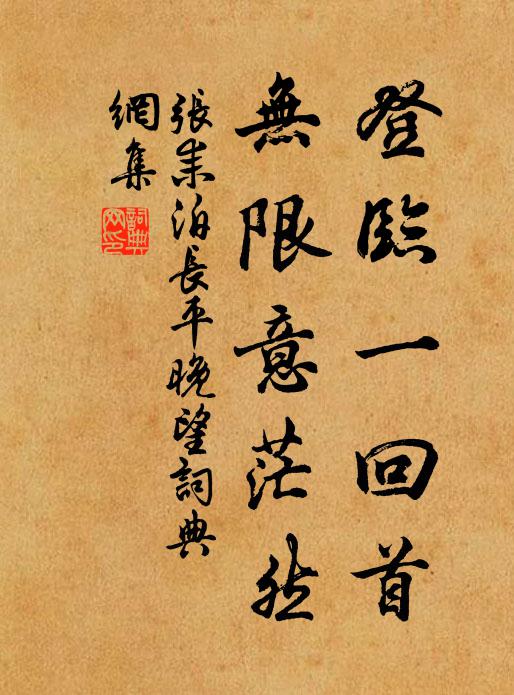 登臨一回首
無限意茫然
張耒泊長平晚望詞典
網集
詞典
网印